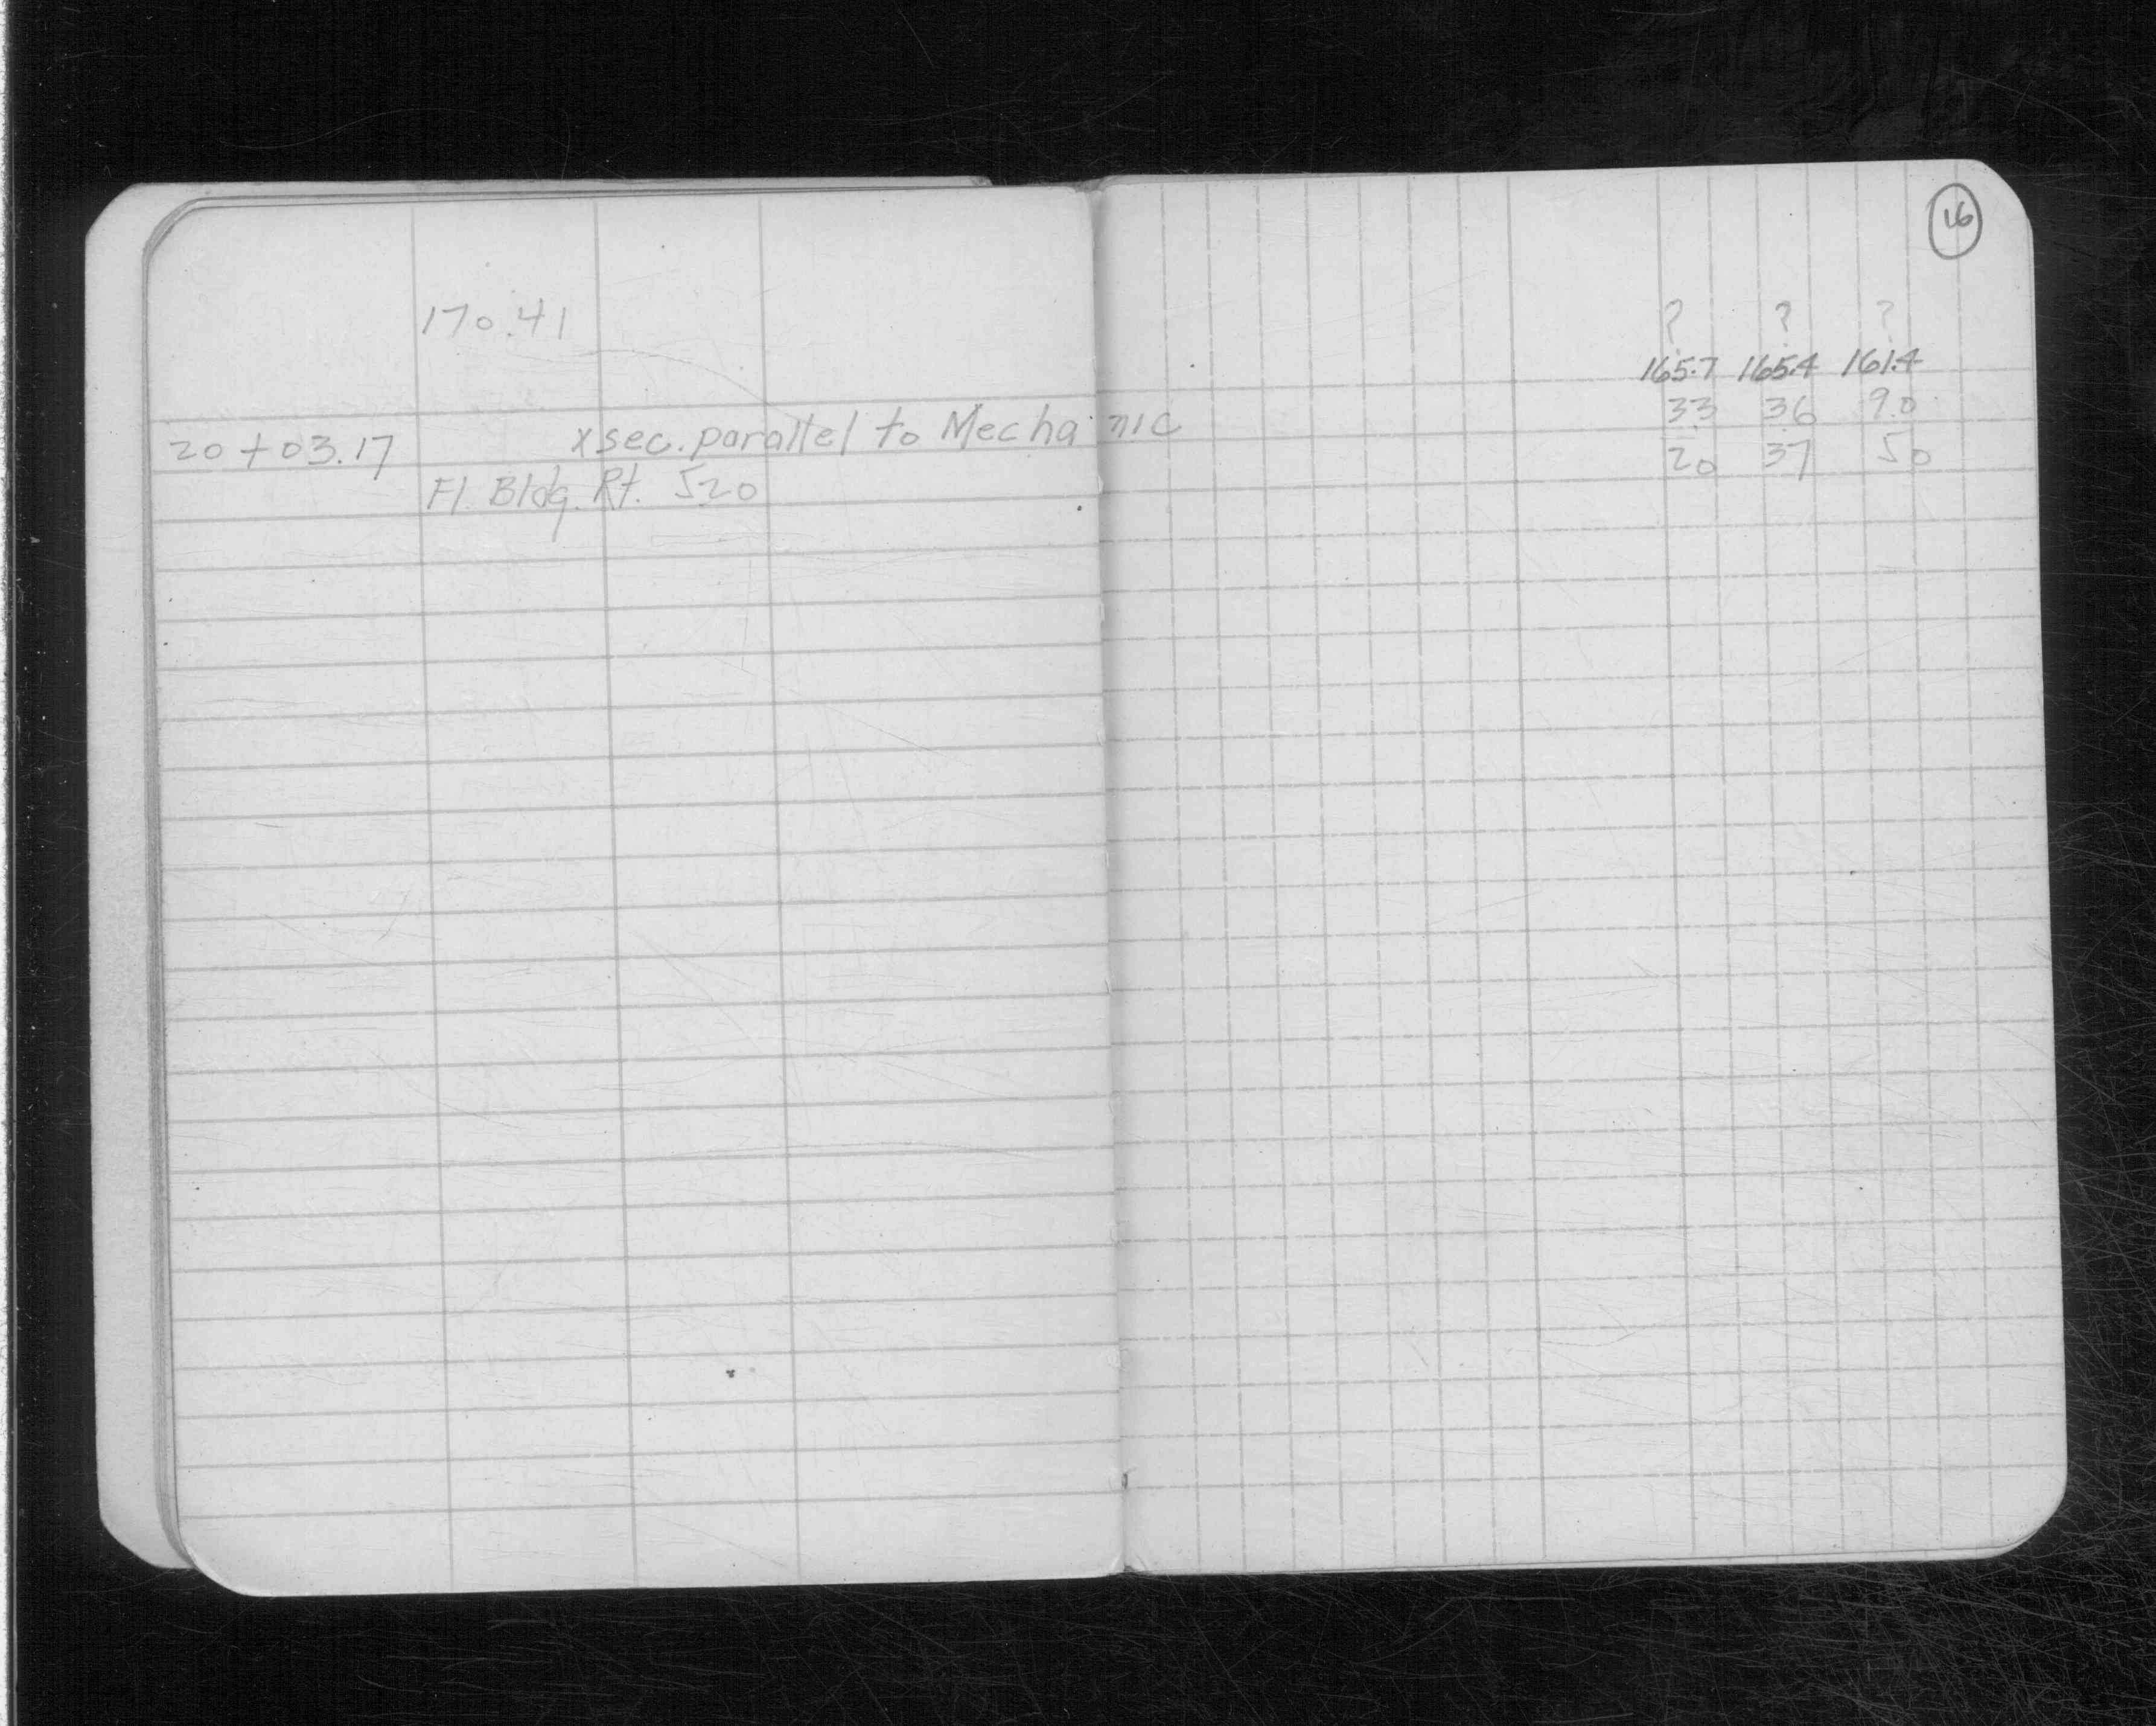 16
170.41
? ? ?
165.7 165.4 161.4
20+03.17 xsec. parallel to Mechanic 33 36 9.0
Fl. Bldg. Rt. 520 20 37 50